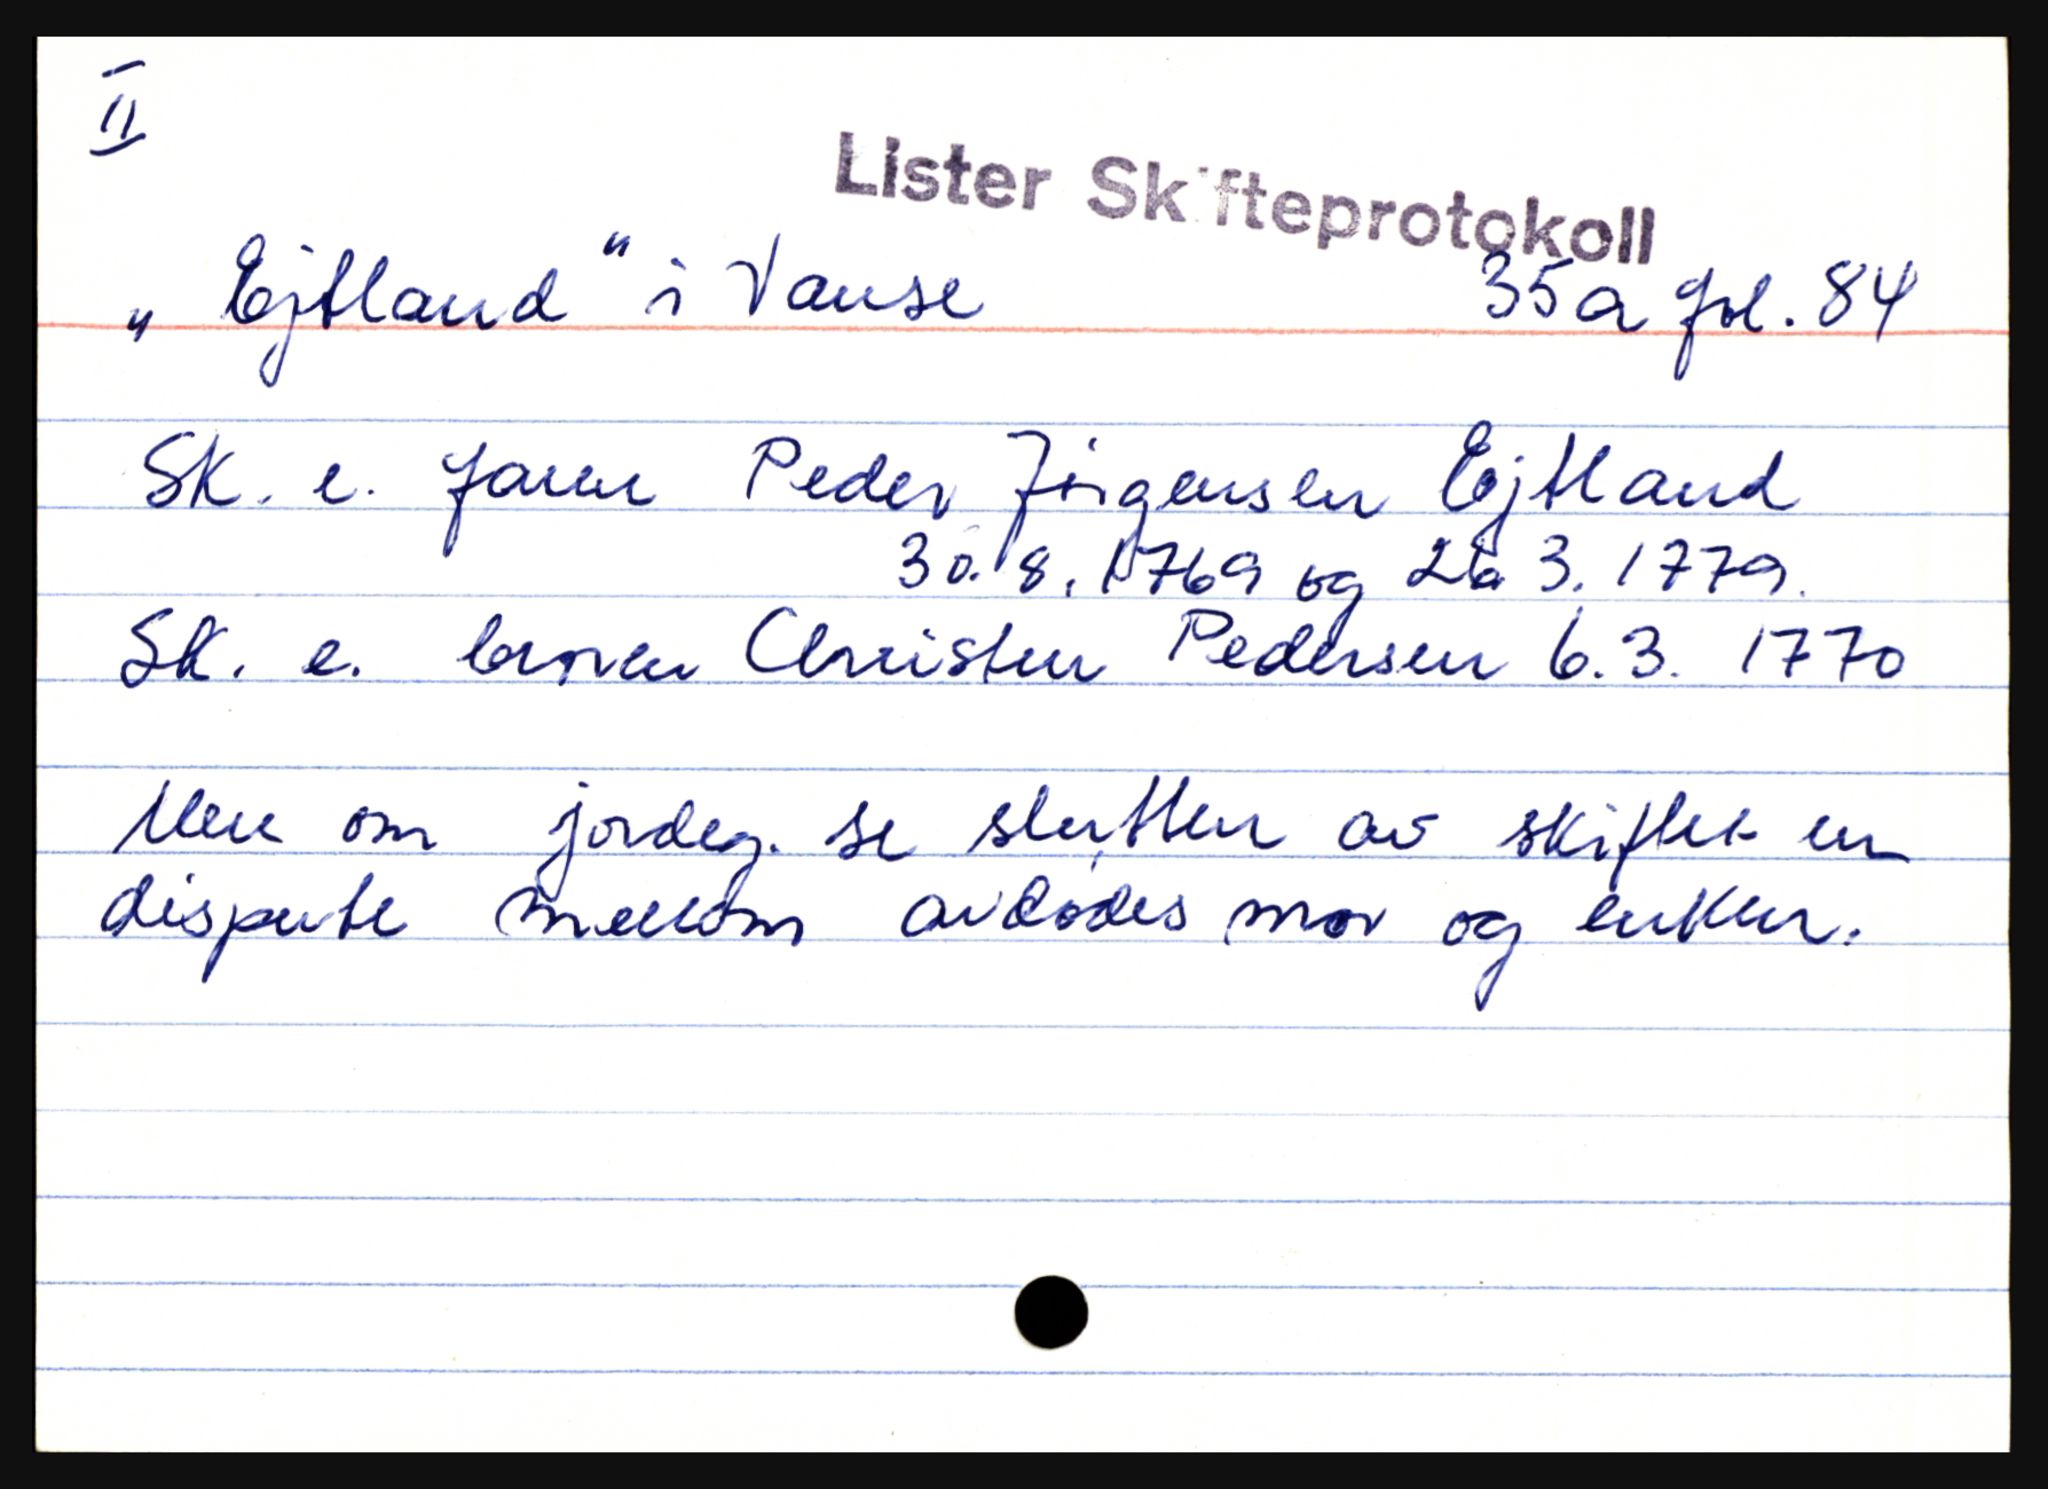 II
Lister Skifteprotokoll
„Ejtland" i Vanse 35a fol. 84
Sk. e. faren Peder Jörgensen Ejtland
30.8.1769 og 3.1779.
Sk. e. broren Christen Pedersen 6.3.1770
Mere om jordeg. se slutten av skiftet en
dispute mellom avdødes mor og enken.